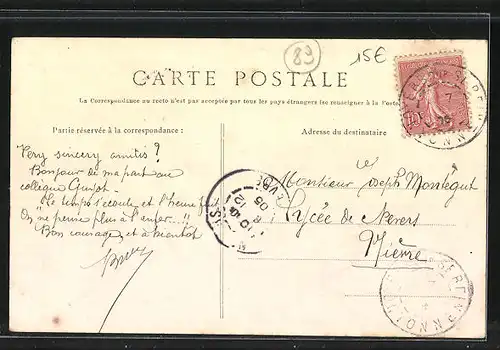 89
15€
CARTE POSTALE
La Correspondance au recto n'est pas acceptée par tous les pays étrangers (se renseigner à la Poste
Partie réservée à la correspondance :
Adresse du destinataire
Very sincery amitiés ?
Bonjour de ma part au
collègue Guyot -
"Le temps s'écoule et l'heure
On ne pense plus à l'enfer ..."
Bon courage, et à bientôt
Monsieur Joseph Montégut
Lycée de Nevers
Nièvre